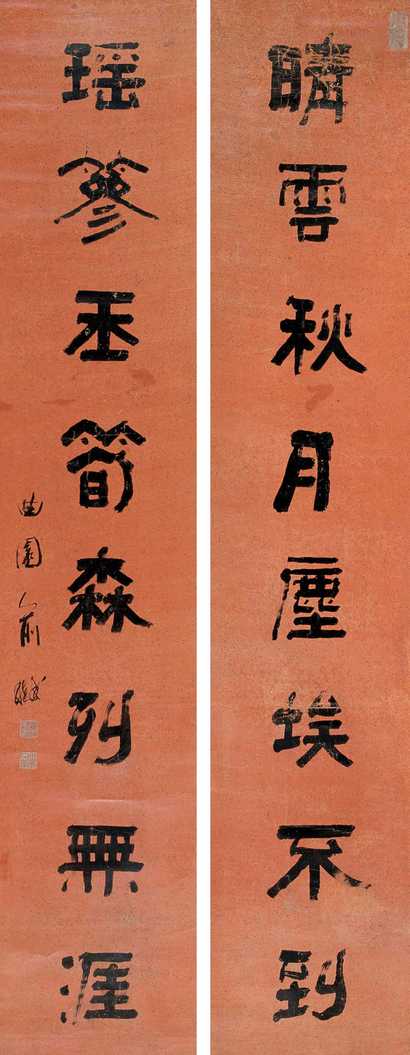 晴雲秋月塵埃不到
瑤篸玉筍森列無涯
曲園俞樾